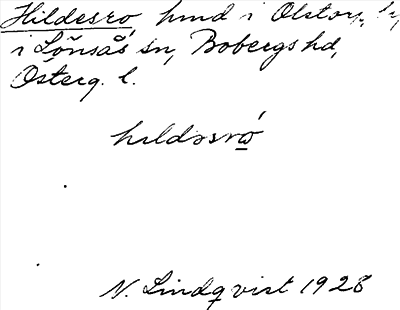 Hildesro, hmd i Olstorp, by,
i Lönsås sn, Bobergs hd,
Österg. l.
hıldəsrὼ
N. Lindqvist 1928